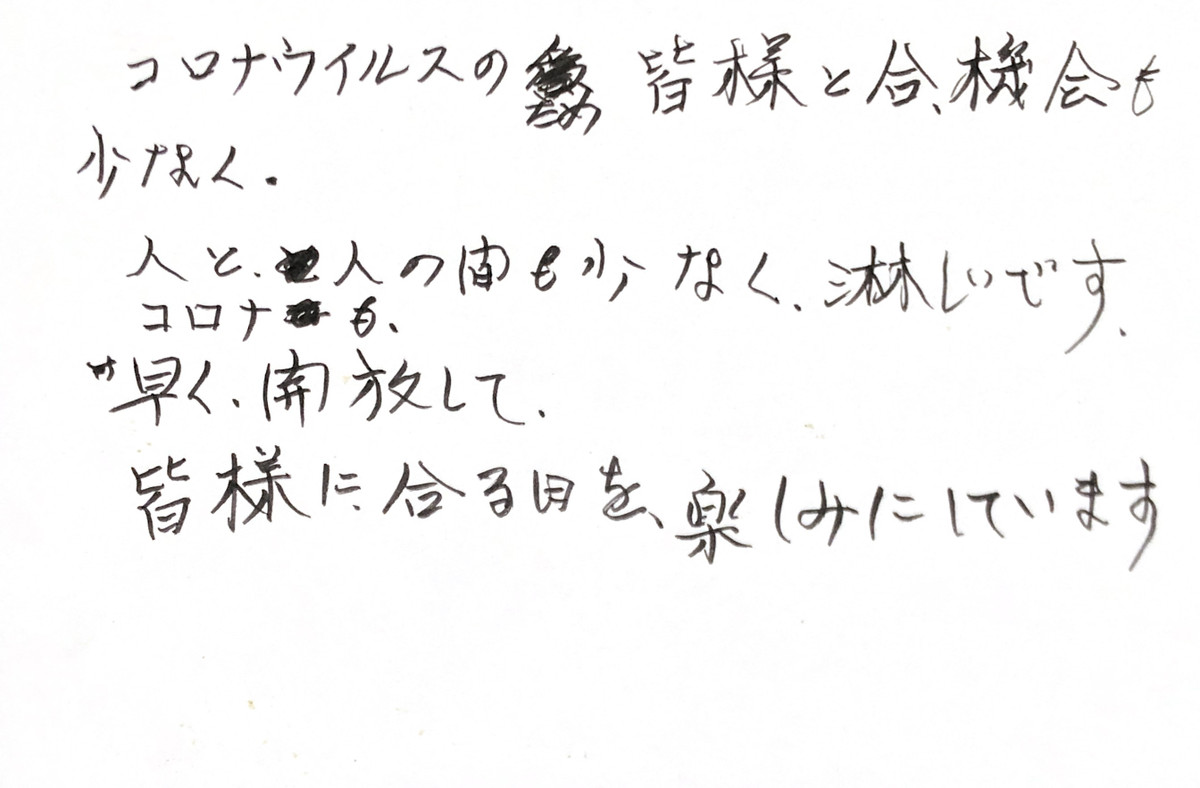 コロナウイルスのため 皆様と合、機会も
少なく.
人と、人の間も少なく、淋しいです.
コロナも、
早く、開放して、
皆様に、合る日を、楽しみにしています